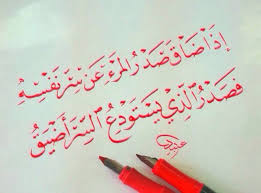 إِذَا ضَاقَ صَدْرُ المَرْءِ عَنْ سِرِّ نَفْسِهِ
فَصَدْرُ الَّذِي يَسْتَوْدِعُ السِّرَّ أَضْيَقُ